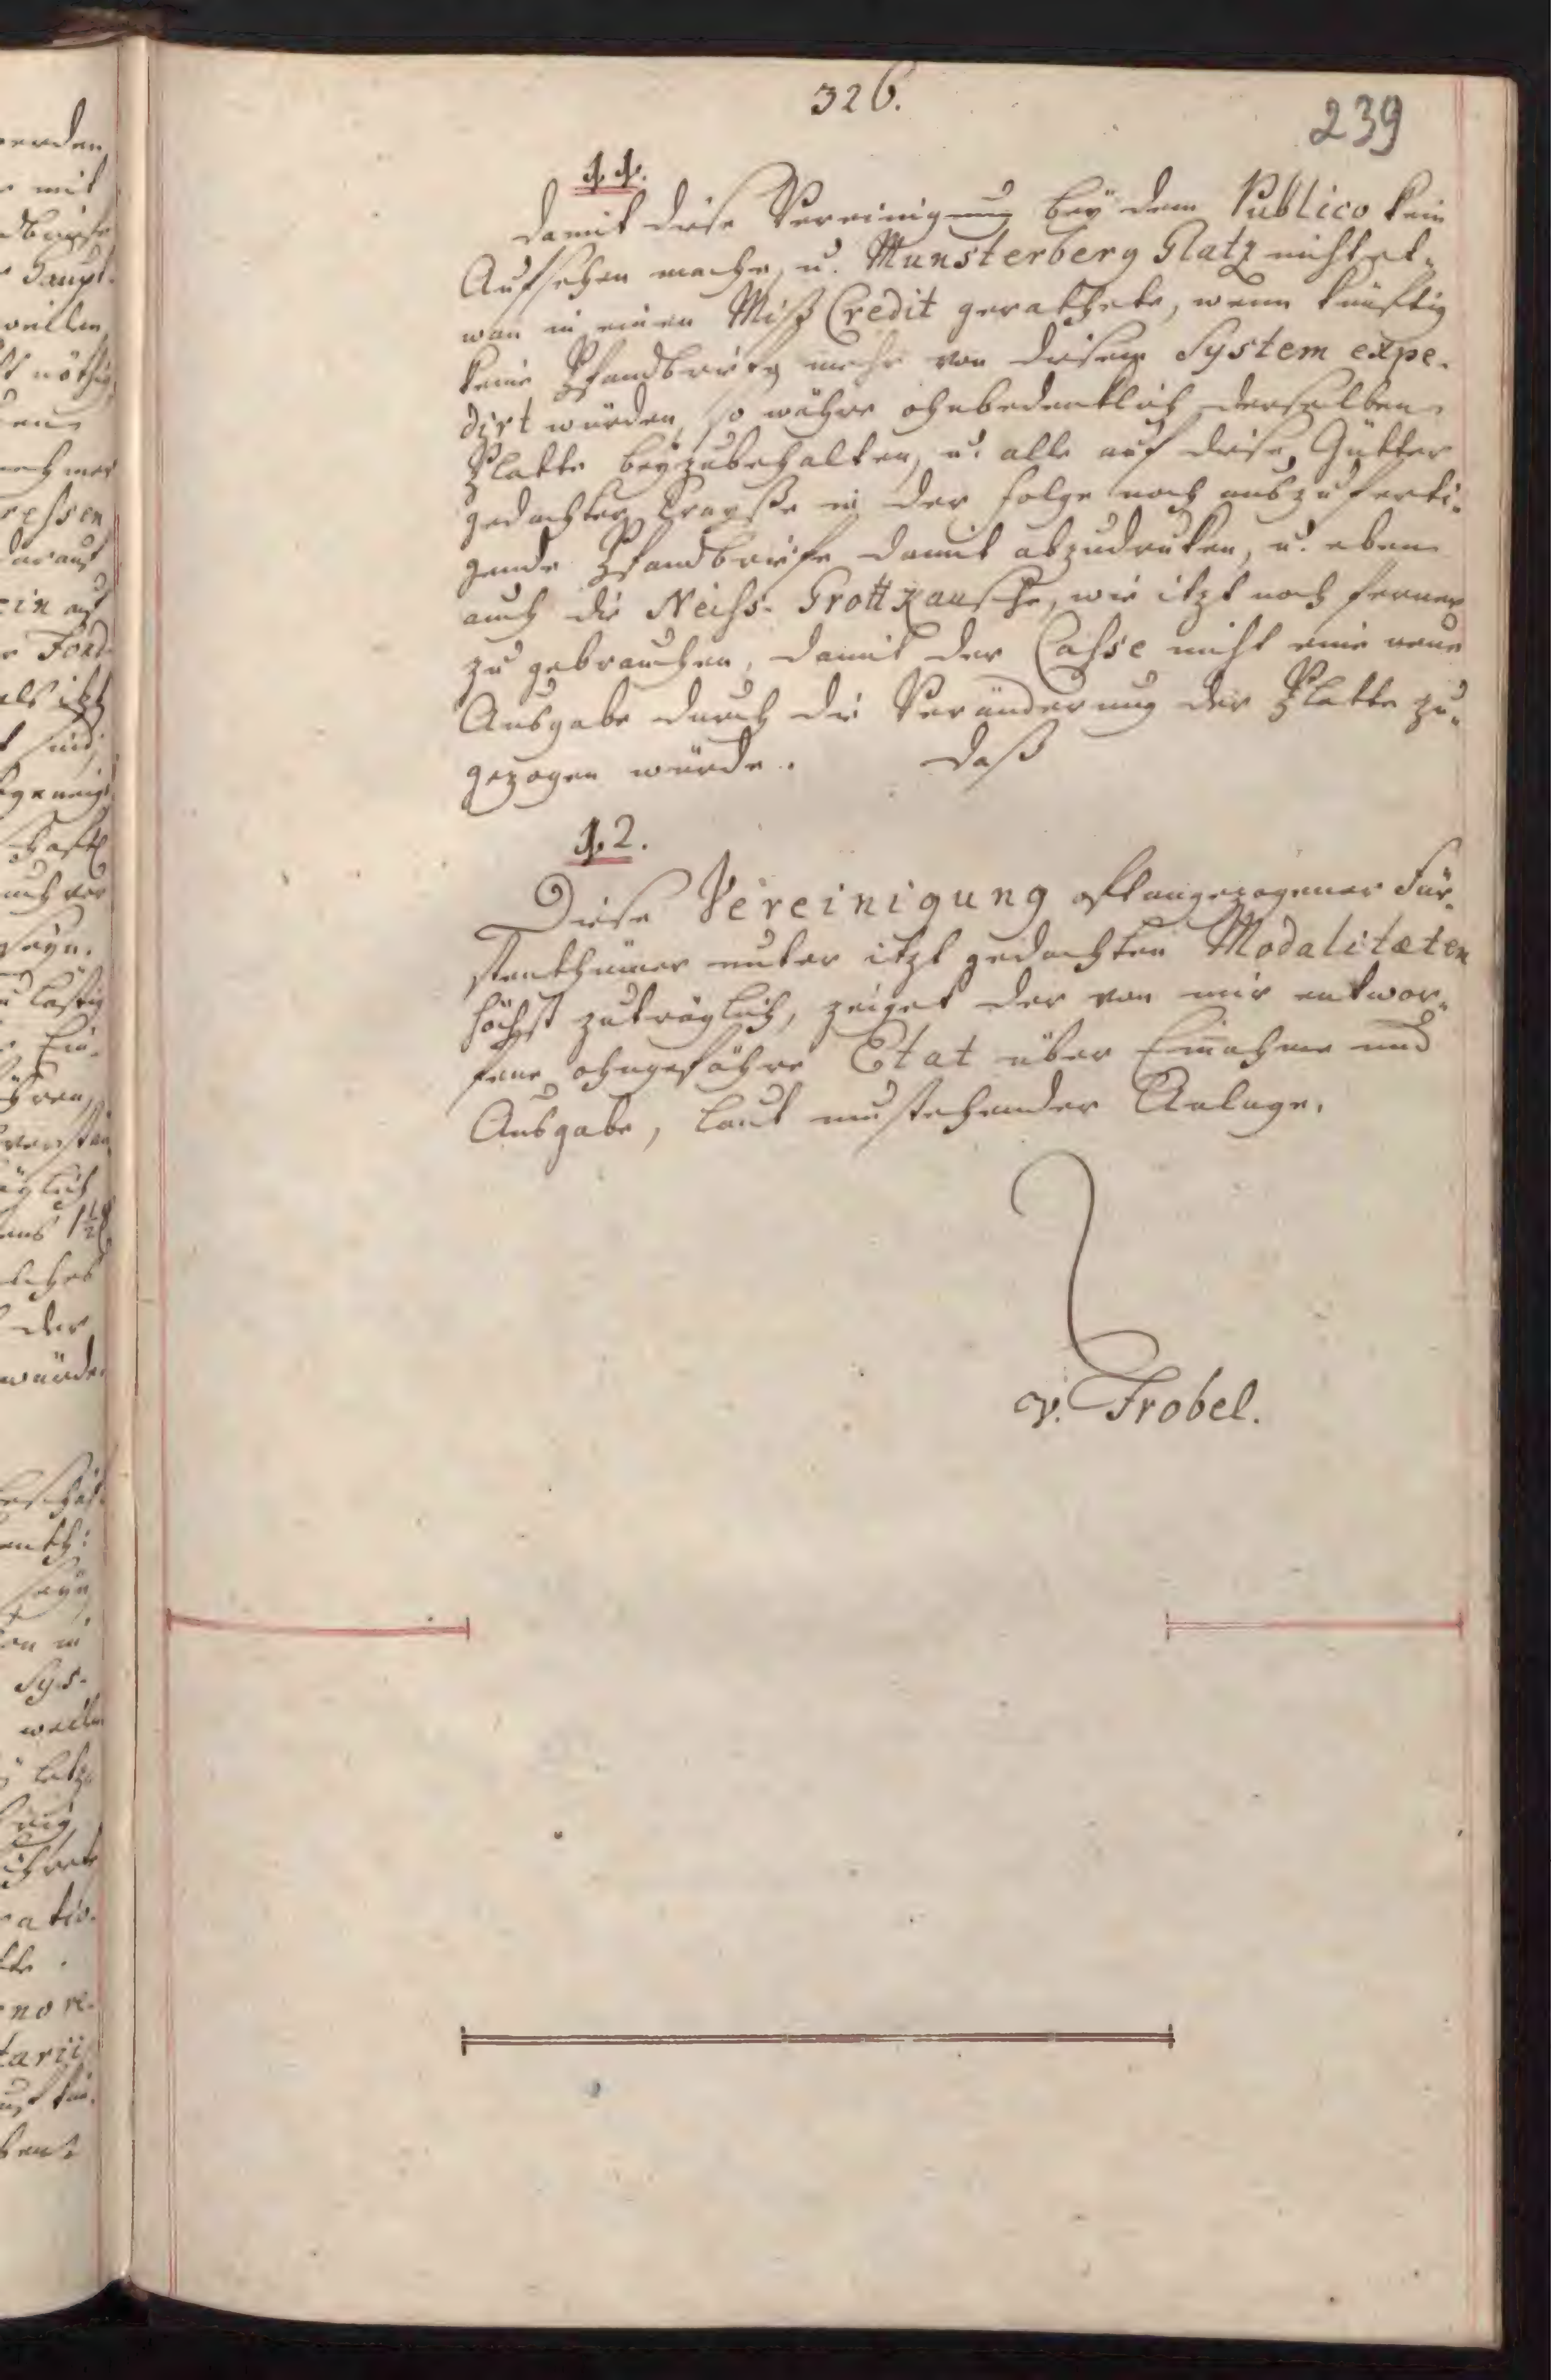 326.
239
11.
Damit diese Vereinigung beÿ dem Publico kein
Aufsehen mache, u. Munsterberg Glatz nicht et-
wan in einen Miß Credit gerathete, wenn künftig
keine Pfandbriefe mehr von diesem System expe-
dirt würden, so währe ohnbedenklich derselben
Platte beÿzubehalten, u. alle auf diese Gütter
gedachter Crayße in der Folge noch auszuferti-
gende Pfandbriefe damit abzudruken, u. eben
auch die Neiss- Grottkausche, wie itzt noch ferner
zu gebrauchen, damit der Casse nicht eine neue
Ausgabe durch die Veränderung der Platte zu-
gezogen würde. Daß
12.
Diese Vereinigung oftangezogener Für-
stenthümer unter itzt gedachten Modalitæten
höchst zuträglich, zeiget der von mir entwor-
fene ohngefähre Etat über Einnahme und
Ausgabe, laut Anlage.
v. Frobel.